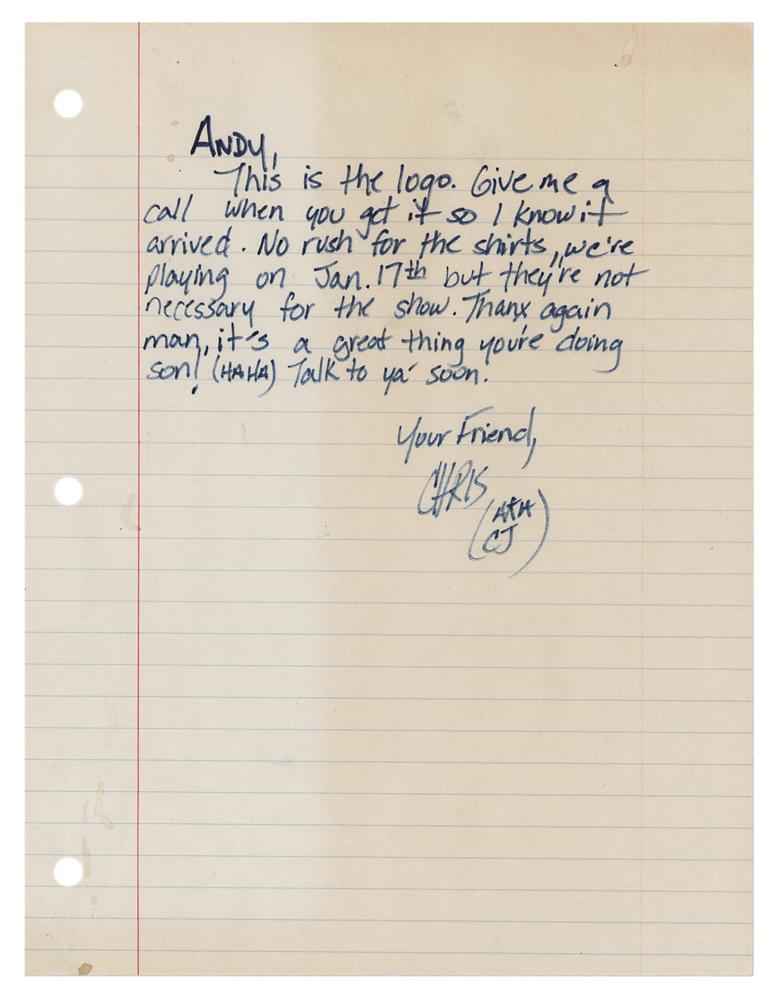 ANDY,
This is the logo. Give me a
call when you get it so I know it
arrived. No rush for the shirts, we're
playing on Jan. 17th but they're not
necessary for the show. Thanx again
man, it's a great thing you're doing
son! (HAHA) Talk to ya' soon!
Your Friend,
CHRIS
(AKA
CJ)